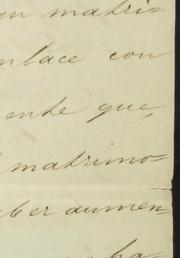 on matri=
nlace con
ente que,
matrimo=
ber aumen=
ha=